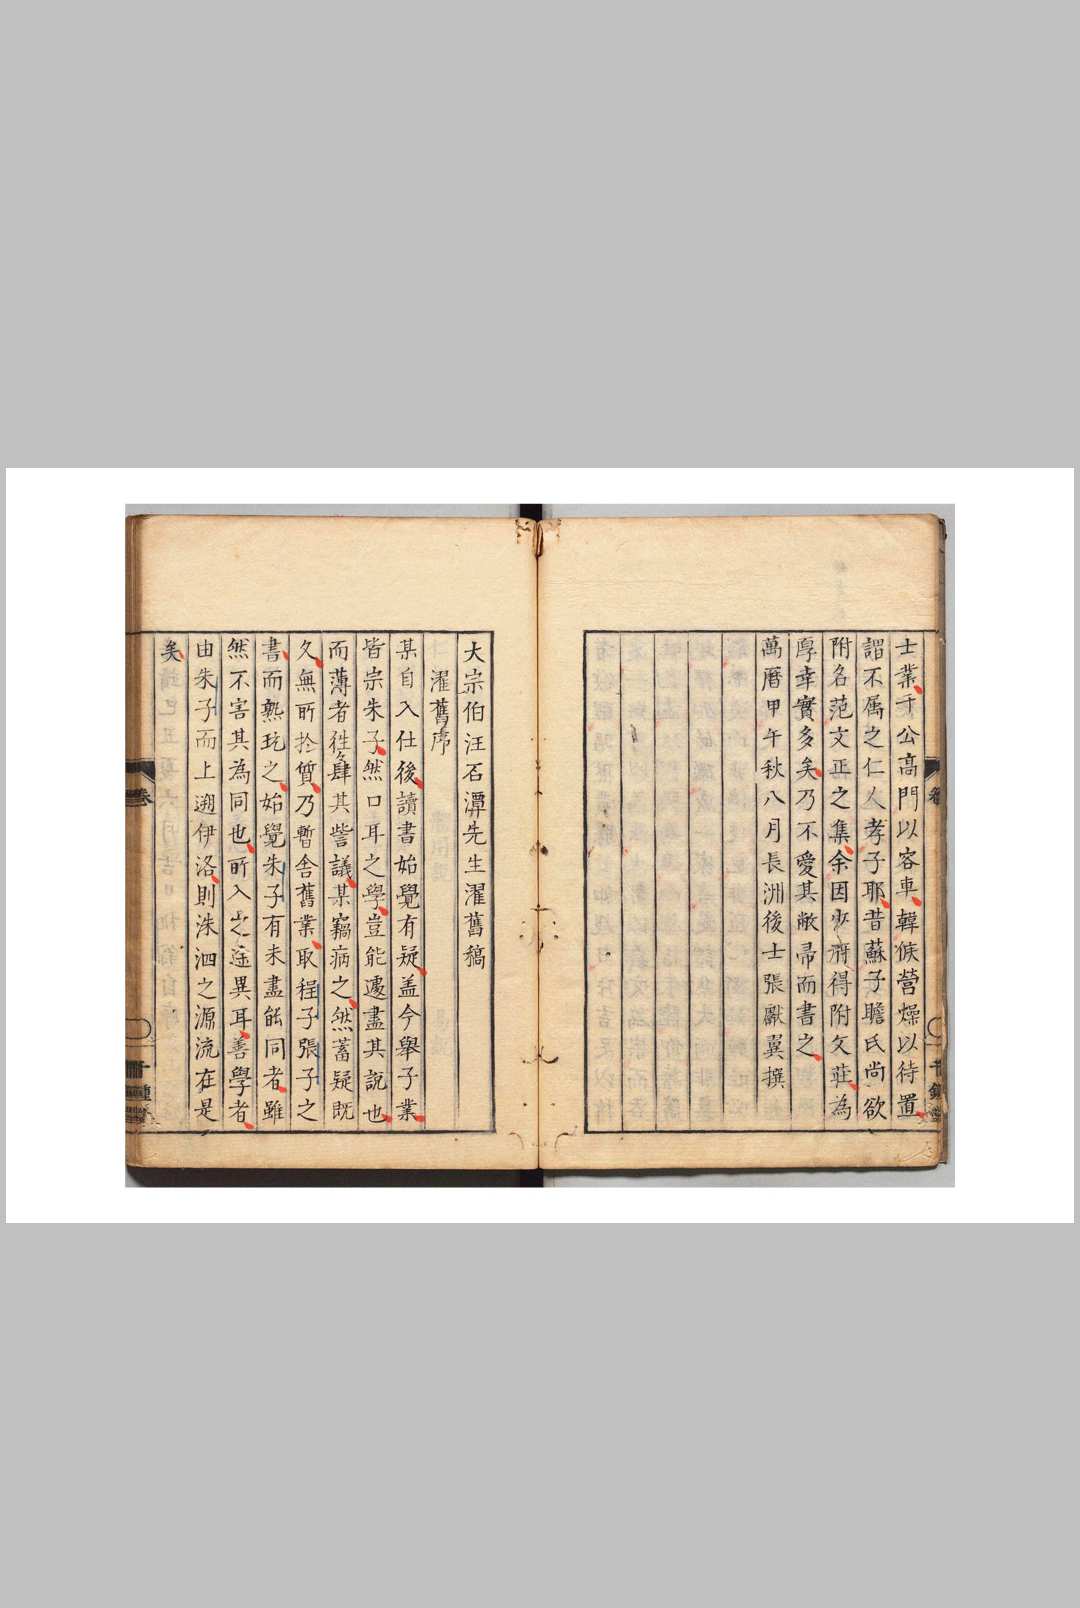 士業于公高門以容車韓候營燥以待置
謂不属之仁人孝子耶昔蘇子瞻氏尚欲
附名范文正之集余因少府得附文莊為
厚幸實多矣乃不愛其敝帚而書之
萬曆甲午秋八月長洲後士張獻翼撰
大宗伯汪石潭先生濯舊稿
濯舊序
某自入仕後讀書始覺有疑盖今舉子業
皆宗朱子然口耳之學豈能遽盡其說也
而薄者徃〻肆其訾議某竊病之然蓄疑既
久無所於質乃暫舍舊業取程子張子之
書而熟玩之始覺朱子有未盡能同者雖
然不害其為同也所入之途異耳善學者
由朱子而上遡伊洛則洙泗之源流在是
矣